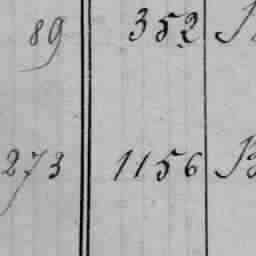 89 352
273 1156 B